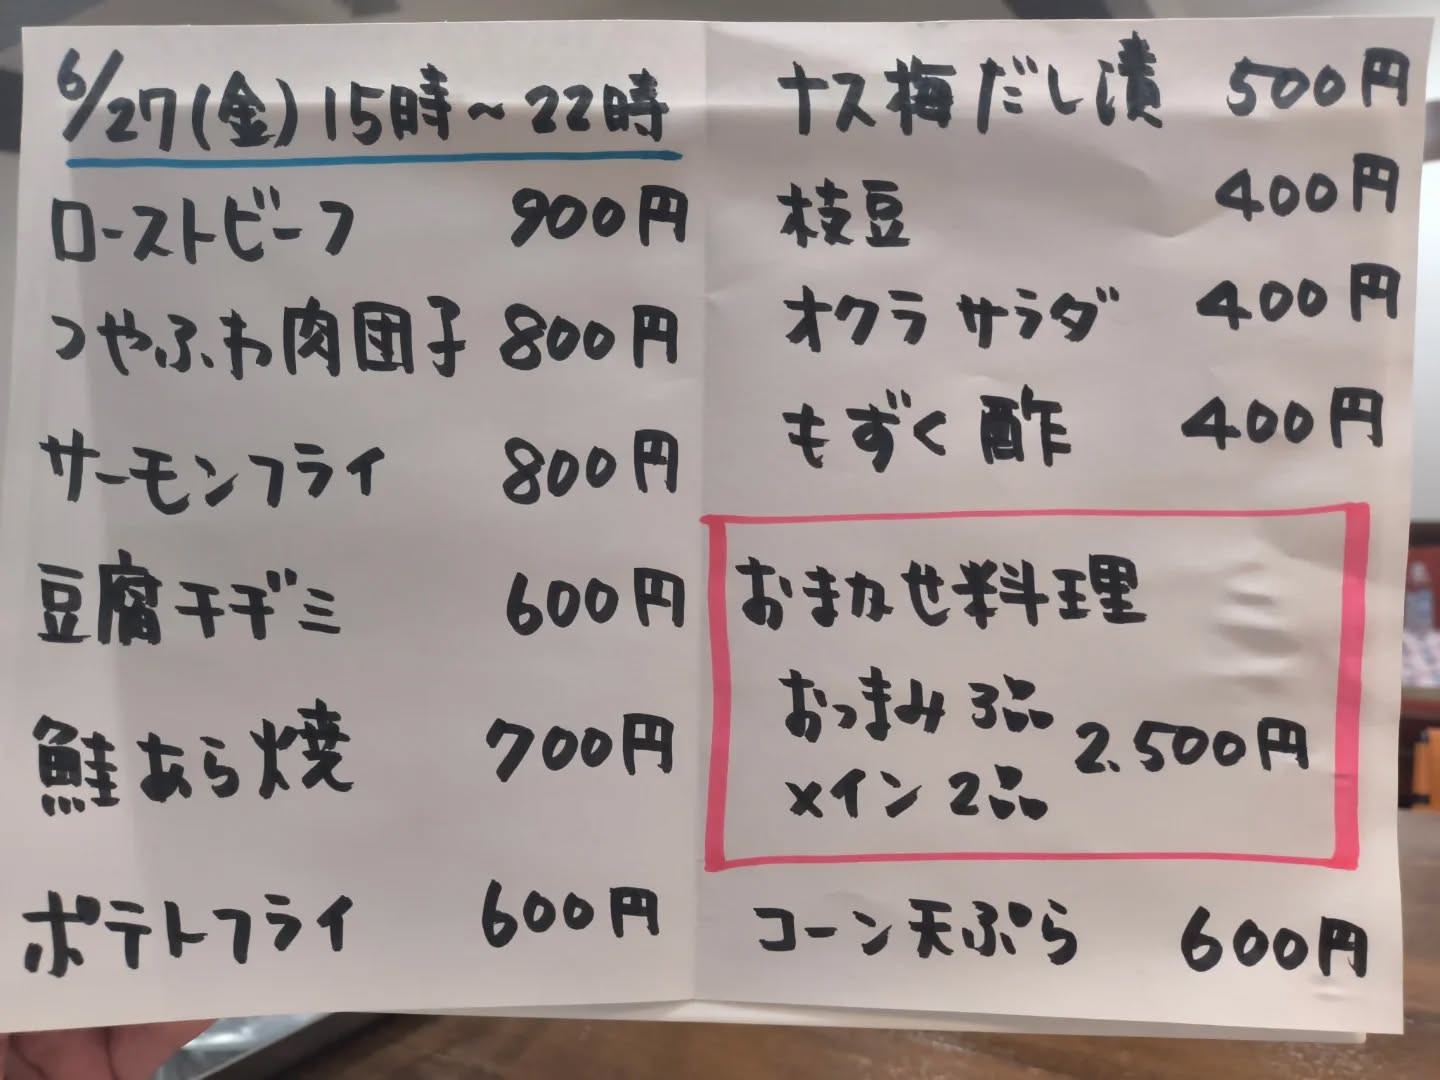 6/27(金)15時～22時
ローストビーフ 900円
つやふわ肉団子 800円
サーモンフライ 800円
豆腐チヂミ 600円
鮭あら焼 700円
ポテトフライ 600円
ナス梅だし漬 500円
枝豆 400円
オクラサラダ 400円
もずく酢 400円
おまかせ料理
おつまみ3品
メイン2品 2.500円
コーン天ぷら 600円